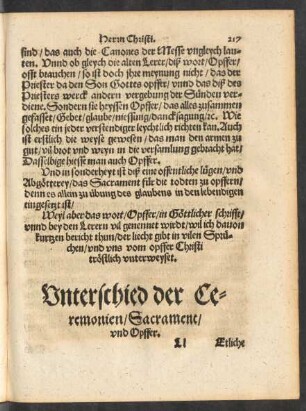 Herrn Christi. 217
sind / das auch die Canones der Messe vngleych lau-
ten. Vnnd ob gleych die alten Lerer / diß wort / Opffer /
offt brauchen / so ist doch jhre meynung nicht / das der
Priester da den Son Gottes opffer / vnnd das diß des
Priesters werck andern vergebung der Sünden ver-
diene. Sondern sie heyssen Opffer / das alles zusammen
gefasset / Gebet / glaube / niessung / dancksagung / ꝛc. Wie
solches ein jeder verstendiger leychtlich richten kan. Auch
ist erstlich die weyse gewesen / das man den armen zu
gut / vil brot vnd weyn in der versamlung gebracht hat /
Dasselbige hiesse man auch Opffer.
Vnd in sonderheyt ist diß eine offentliche lügen / vnd
Abgötterey / das Sacrament für die todten zu opffern /
denn es allein zu übung des glaubens in den lebendigen
eingesetzt ist /
Weyl aber das wort / Opffer / in Göttlicher schrifft /
vnnd bey den Lerern vil genennet wirdt / wil ich dauon
kurtzen bericht thun / der liecht gibt in vilen Sprü-
chen / vnd vns vom opffer Christi
tröstlich vnterweyset.
Vnterschied der Ce-
remonien / Sacrament /
vnd Opffer.
Ll Etliche